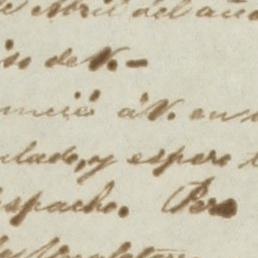 de Abril del año
iso de V. –
unció á V. en
ulado, y espero
spacho. Pero